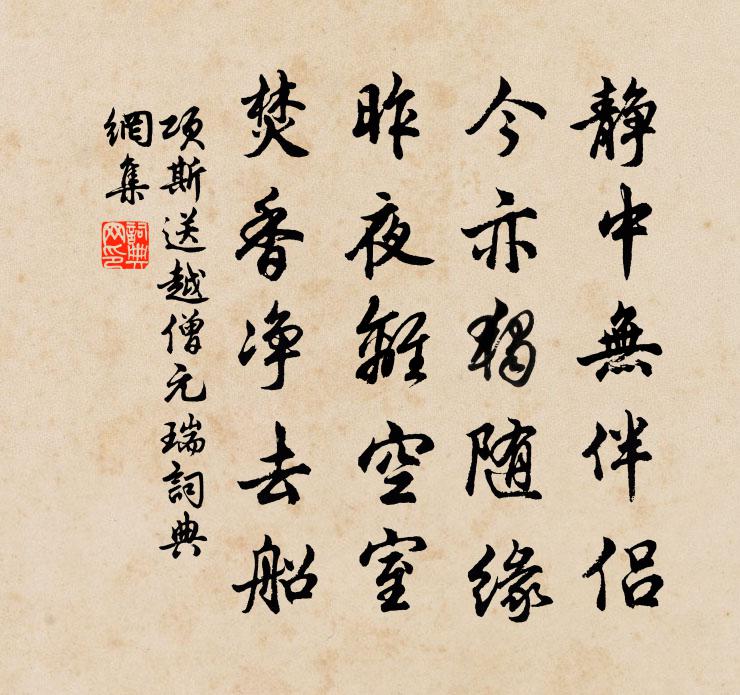 静中無伴侣
今亦獨随緣
昨夜離空室
焚香净去船
項斯送越僧元瑞詞典
網集
詞典網印